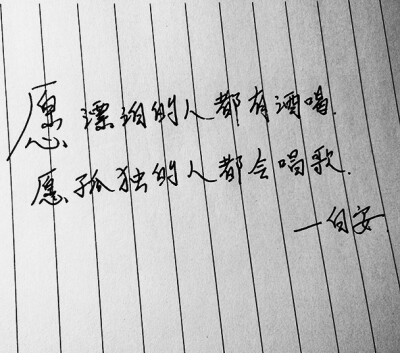 愿漂泊的人都有酒喝.
愿孤独的人都会唱歌.
—白安.